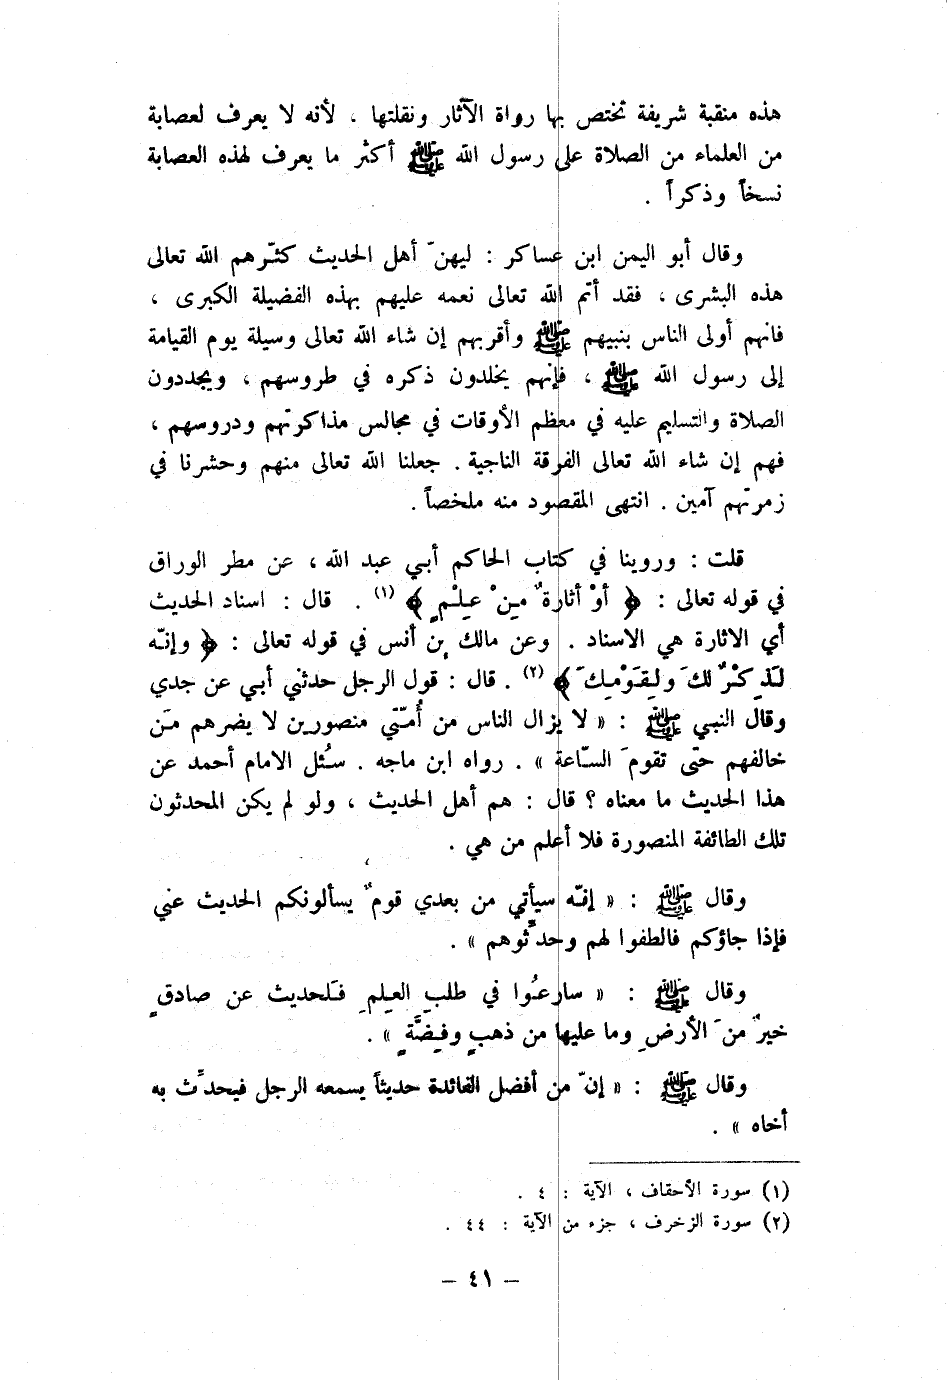 هذه منقبة شريفة تختص بها رواة الآثار ونقلتها ، لأنه لا يعرف لعصابة
من العلماء من الصلاة على رسول الله ﷺ أكثر ما يعرف لهذه العصابة
نسخاً وذكراً .
وقال أبو اليمن ابن عساكر : ليهنَ أهل الحديث كثّرهم الله تعالى
هذه البشرى ، فقد أتم الله تعالى نعمه عليهم بهذه الفضيلة الكبرى ،
فانهم أولى الناس بنبيهم ﷺ وأقربهم إن شاء الله تعالى وسيلة يوم القيامة
إلى رسول الله ﷺ ، فإنهم يخلدون ذكره في طروسهم ، ويجددون
الصلاة والتسليم عليه في معظم الأوقات في مجالس مذاكرتهم ودروسهم ،
فهم إن شاء الله تعالى الفرقة الناجية . جعلنا الله تعالى منهم وحشرنا في
زمرتهم آمين . انتهى المقصود منه ملخصاً .
قلت : وروينا في كتاب الحاكم أبي عبد الله ، عن مطر الوراق
في قوله تعالى : ﴿ أوْ أثارةٌ مِنْ عِلْمٍ ﴾ (١) . قال : اسناد الحديث
أي الاثارة هي الاسناد . وعن مالك بن أنس في قوله تعالى : ﴿ وإنّه
لَذِكْرٌ لكَ ولِقَوْمِكَ ﴾ (٢) . قال : قول الرجل حدثني أبي عن جدي
وقال النبي ﷺ : « لا يزال الناس من أُمّتي منصورين لا يضرهم مَن
خالفهم حتّى تقومَ السّاعة » . رواه ابن ماجه . سُئل الامام أحمد عن
هذا الحديث ما معناه ؟ قال : هم أهل الحديث ، ولو لم يكن المحدثون
تلك الطائفة المنصورة فلا أعلم من هي .
وقال ﷺ : « إنّه سيأتي من بعدي قومٌ يسألونكم الحديث عني
فإذا جاؤكم فالطفوا لهم وحدِّثوهم » .
وقال ﷺ : « سارعُوا في طلبِ العِلمِ فَلحديث عن صادقٍ
خيرٌ منَ الأرضِ وما عليها من ذهبٍ وفِضَّةٍ » .
وقال ﷺ : « إنّ من أفضل الفائدة حديثاً يسمعه الرجل فيحدِّث به
أخاه » .
(١) سورة الأحقاف ، الآية : ٤ .
(٢) سورة الزخرف ، جزء من الآية : ٤٤ .
– ٤١ –